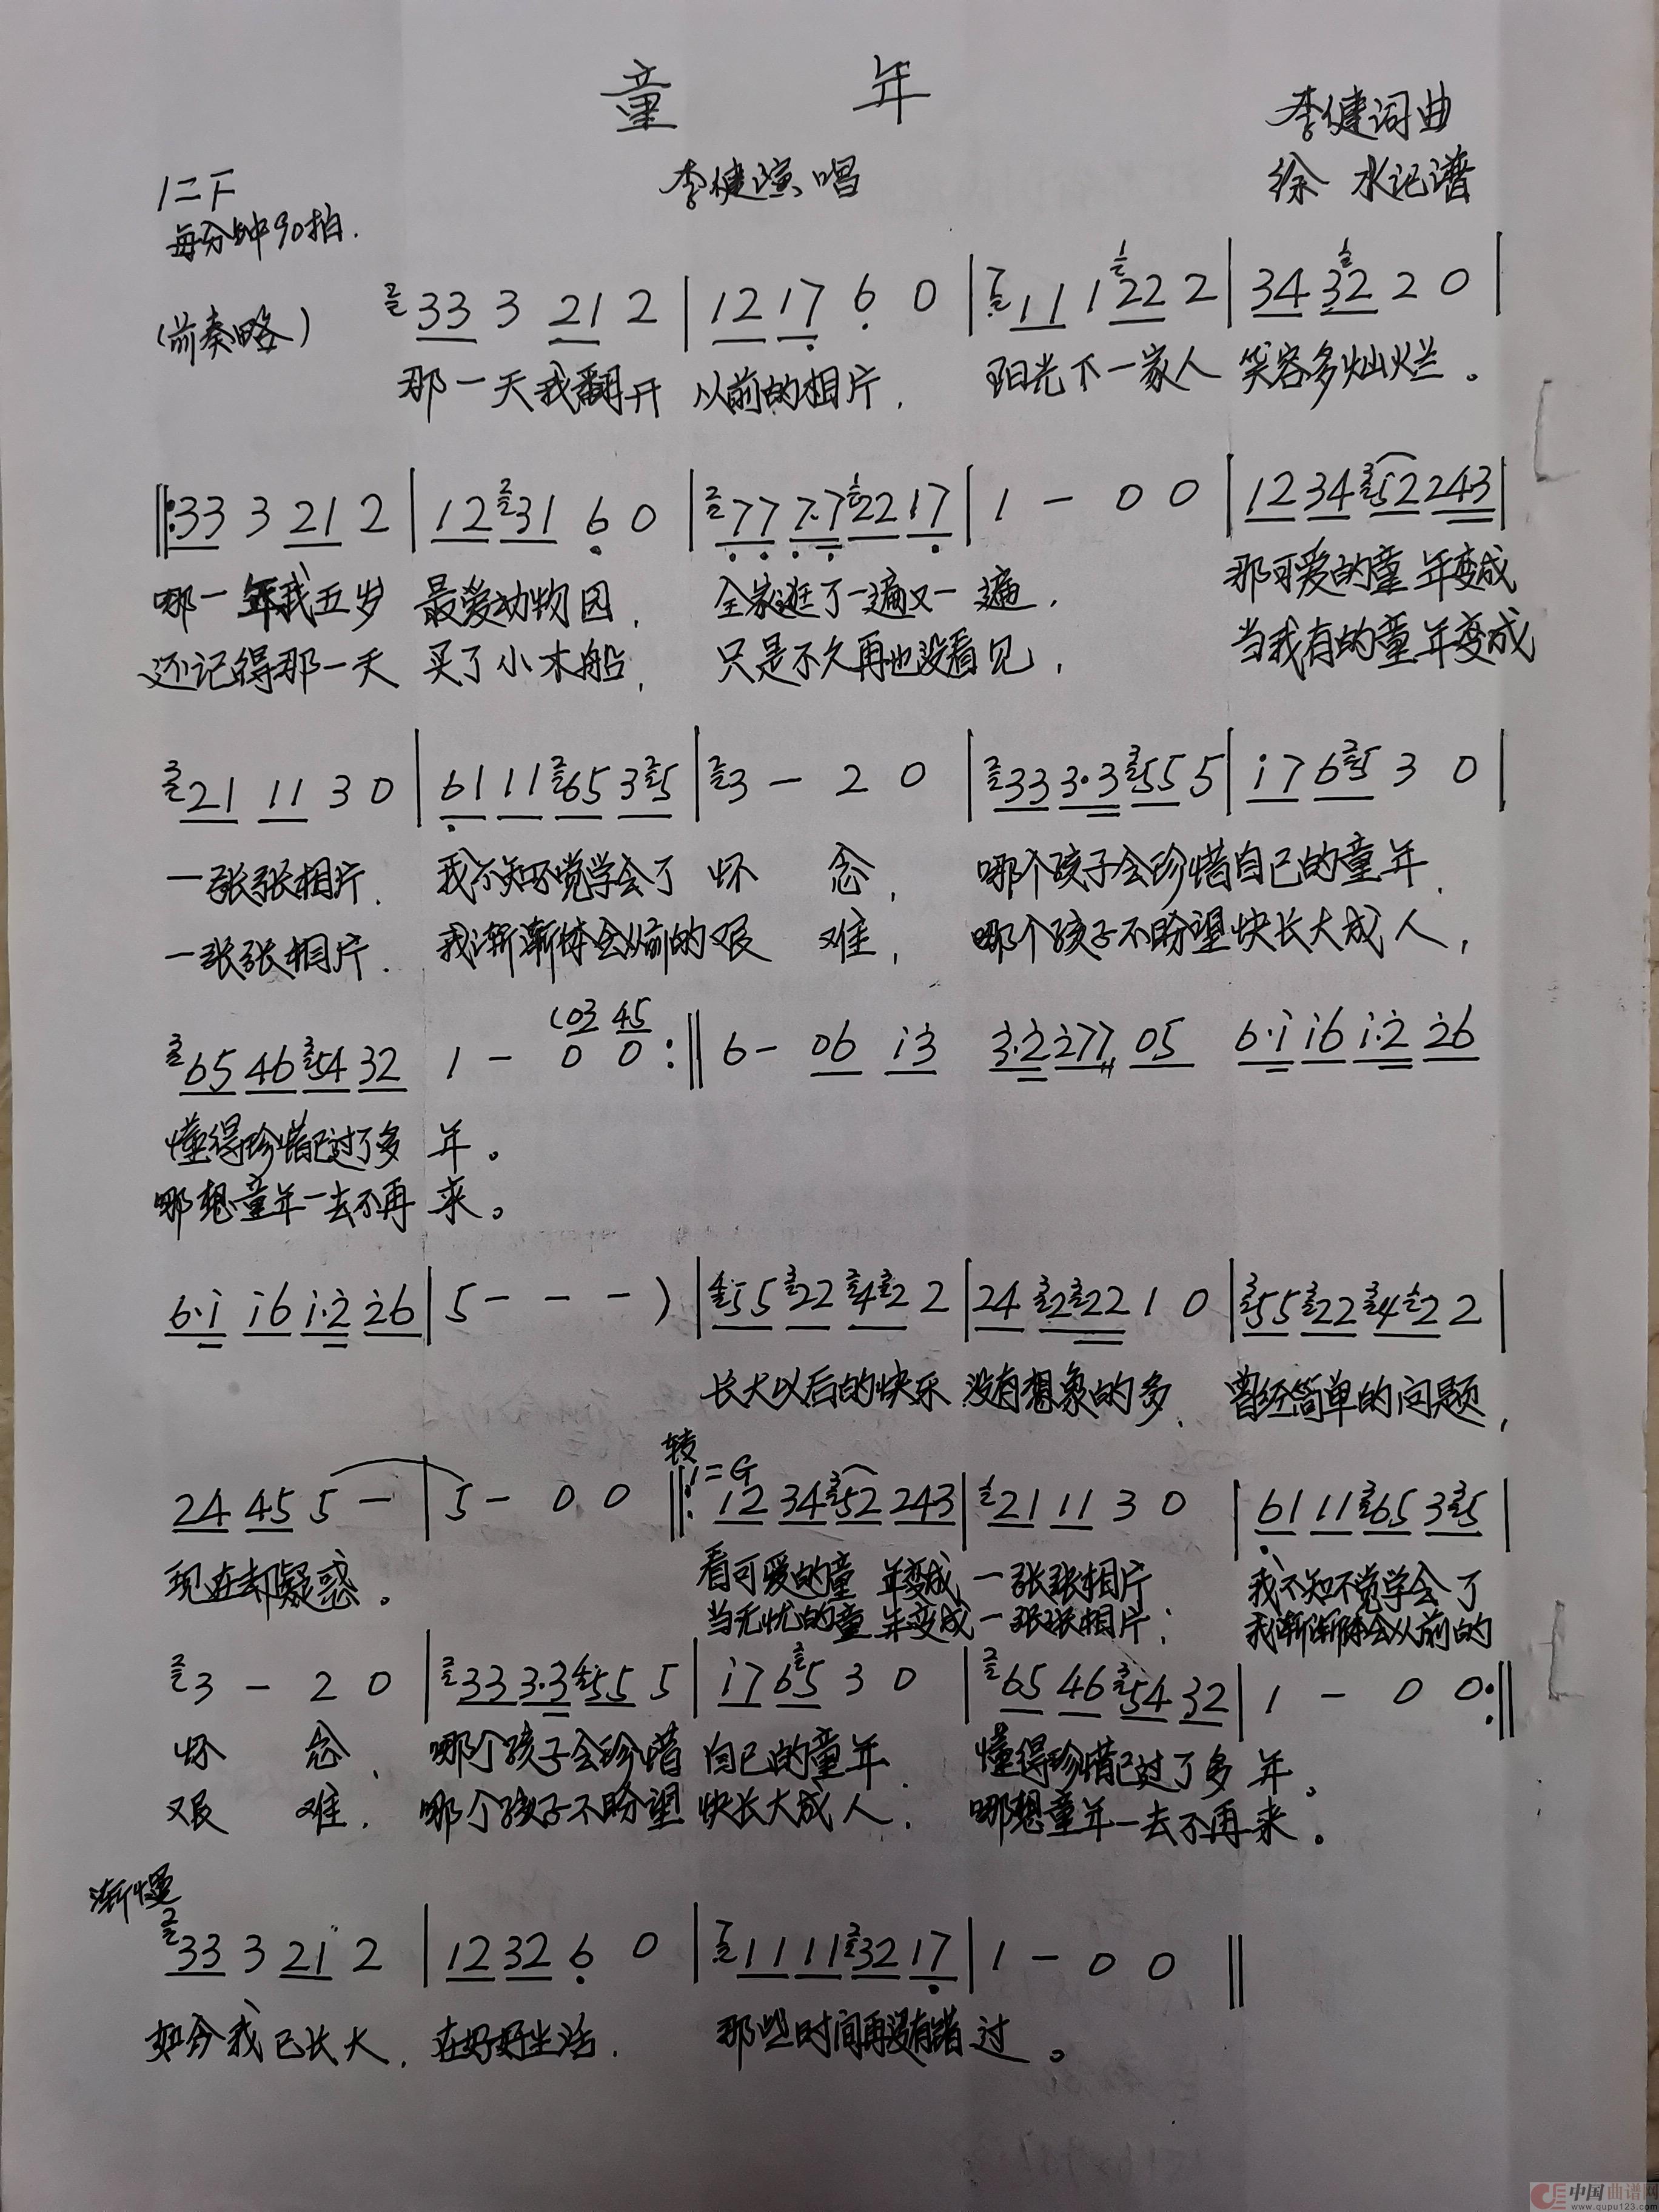 童 年
李健词曲
李健演唱
徐 水记谱
1=F
每分钟90拍.
(前奏略) 2 33 3 21 2 | 12 17 6 0 | 7 11 1 1 22 2 | 34 1 32 2 0 |
那一天我翻开 以前的相片. 阳光下一家人 笑容多灿烂。
‖:33 3 21 2 | 12 2 31 6 0 | 2 77 7.7 1 22 17 | 1 - 0 0 | 12 34 3 52 243 |
哪一年我五岁 最爱动物园. 全家逛了一遍又一遍. 那可爱的童年变成
还记得那一天 买了小木船, 只是不久再也没看见, 当我有的童年变成
3 21 11 3 0 | 61 11 2 65 3 2 5 | 2 3 - 2 0 | 2 33 3.3 3 55 5 | i7 6 2 5 3 0 |
一张张相片. 我不知不觉学会了 怀 念, 哪个孩子会珍惜自己的童年.
一张张相片. 我渐渐体会从前的艰 难, 哪个孩子不盼望快长大成人,
(03 45
3 65 46 3 54 32 1 - 0 0 :‖ 6 - 06 i3 3.2 277 05 6.i i6 i.2 26
懂得珍惜已过了多 年。
哪想童年一去不再 来。
6.i i6 i.2 26 | 5 - - - ) | 4 55 3 22 3 4 3 2 2 | 24 3 2 3 22 1 0 | 3 55 3 22 3 4 1 2 2 |
长大以后的快乐 没有想象的多. 曾经简单的问题,
转
1=G
24 45 5 - | 5 - 0 0 ‖: i2 34 3 52 243 | 1 21 11 3 0 | 61 11 3 65 3 3 5 |
现在却疑惑。 看可爱的童 年变成 一张张相片 我不知不觉学会了
当无忧的童 年变成 一张张相片; 我渐渐体会从前的
2 3 - 2 0 | 2 33 3.3 4 55 5 | i7 6 2 5 3 0 | 2 65 46 3 54 32 | 1 - 0 0 :‖
怀 念、 哪个孩子会珍惜 自己的童年. 懂得珍惜已过了多 年。
艰 难. 哪个孩子不盼望 快长大成人. 哪想童年一去不再来。
渐慢
2 33 3 21 2 | 12 32 6 0 | 7 11 11 2 32 17 | 1 - 0 0 ‖
如今我已长大. 在好好生活. 那些时间再没有错过。
中国曲谱网
www.qupu123.com